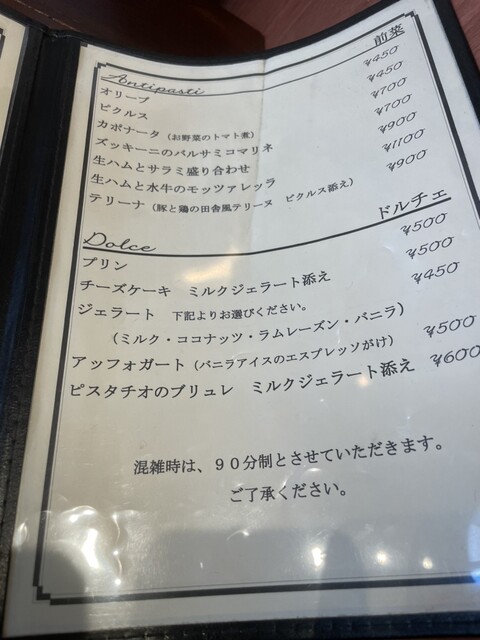 Antipasti 前菜
オリーブ ¥450
ピクルス ¥450
カポナータ（お野菜のトマト煮） ¥700
ズッキーニのバルサミコマリネ ¥700
生ハムとサラミ盛り合わせ ¥900
生ハムと水牛のモッツァレッラ ¥1100
テリーナ（豚と鶏の田舎風テリーヌ ピクルス添え） ¥900
Dolce ドルチェ
プリン ¥500
チーズケーキ ミルクジェラート添え ¥500
ジェラート 下記よりお選びください。 ¥450
（ミルク・ココナッツ・ラムレーズン・バニラ）
アッフォガート（バニラアイスのエスプレッソがけ） ¥500
ピスタチオのブリュレ ミルクジェラート添え ¥600
混雑時は、９０分制とさせていただきます。
ご了承ください。